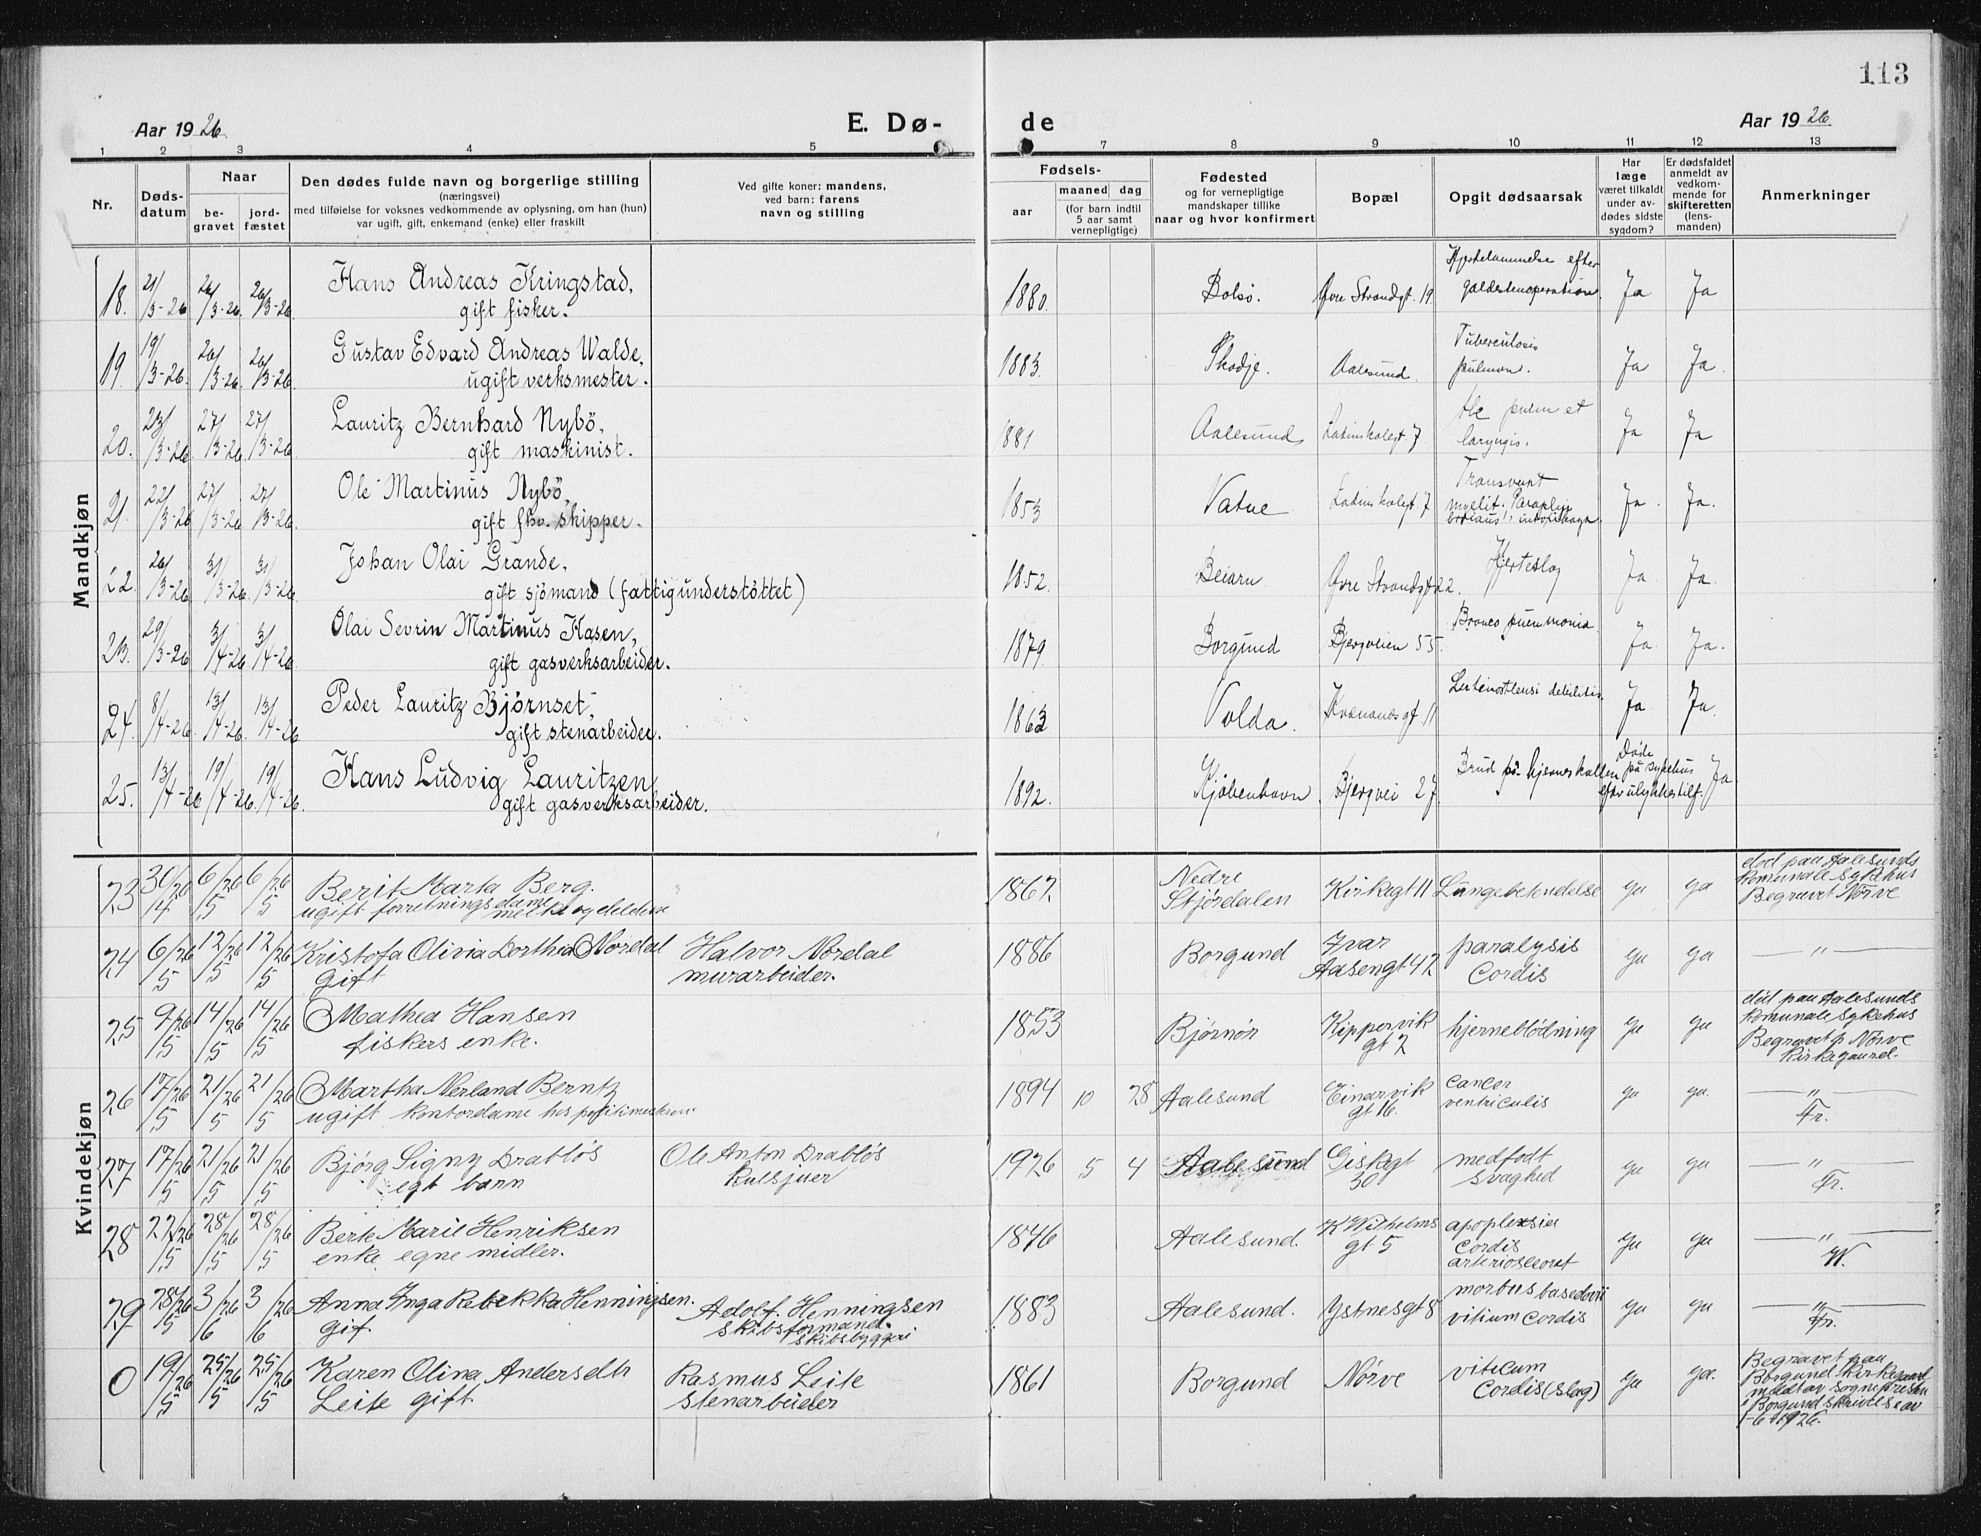 113
Aar 1926
E. Dø-
de
Aar 1926
1 2 3 4 5 7 8 9 10 11 12 13
Nr.
Døds-
datum
Naar
be-
gravet
jord-
fæstet
Den dødes fulde navn og borgerlige stilling
(næringsvei)
med tilføielse for voksnes vedkommende av oplysning, om han (hun)
var ugift, gift, enkemand (enke) eller fraskilt
Ved gifte koner: mandens,
ved barn: farens
navn og stilling
Fødsels-
aar
maaned dag
(for barn indtil
5 aar samt
vernepligtige)
Fødested
og for vernepligtige
mandskaper tillike
naar og hvor konfirmert
Bopæl
Opgit dødsaarsak
Har
læge
været tilkaldt
under av-
dødes sidste
sygdom?
Er dødsfaldet
anmeldt av
vedkom-
mende for
skifteretten
(lens-
manden)
Anmerkninger
Mandkjøn
18. 21/3-26 26/3-26 26/3-26. Hans Andreas Kringstad,
gift fisker.
1880. Bolsø. Øvre Strandgt. 19. Hjertelammelse efter
galdestenoperation. Ja Ja
19. 19/3-26. 26/3-26. 26/3-26. Gustav Edvard Andreas Walde,
ugift verksmester.
1883. Skodje. Aalesund. Tuberculosis
pulmon. Ja Ja.
20. 23/3-26. 27/3-26. 27/3-26. Lauritz Bernhard Nybö,
gift maskinist.
1881 Aalesund Latinskolegt. 7 tbc pulm et
laryngis. Ja Ja
21. 22/3-26 27/3-26 27/3-26. Ole Martinus Nybö,
gift fhv. skipper.
1853 Vatne Latinskolegt 7 myelit. Ja. Ja.
22. 26/3-26 31/3-26. 31/3-26. Johan Olai Grande,
gift sjömand (fattigunderstöttet)
1852. Beiarn Øvre Strandgt 22. Hjerteslag Ja. Ja.
23. 29/3-26 3/4-26 3/4-26. Olai Sevrin Martinus Hasen,
gift gasverksarbeider.
1879. Borgund Bjergveien 55. Ja. Ja.
24. 8/4-26. 13/4-26. 13/4-26. Peder Lauritz Bjørnset,
gift stenarbeider.
1863 Volda. 11 Ja Ja.
25. 13/4-26 19/4-26 19/4-26. Hans Ludvig Lauritzen,
gift gasverksarbeider.
1892. Kjöbenhavn. Bjergvei 27. Brud på hjerneskallen Døde
på sykehus
efter ulykkestilf. Ja.
Kvindekjøn
23 30/26 4 6/26 5 6/26 5 Berit Marta Berg.
ugift forretningsdame
1867. Nedre
Stjördalen Kirkegt 11 Lungebetendelse ja ja död paa Aalesunds
Komunale Sykehus
Begravet Nörve
24 6/26 5 12/26 5 12/26 5 Kristofa Olivia Dorthea Nordal
gift
Halvor Nordal
murarbeider.
1886 Borgund Ivar
Aasengt 47 paralysis
Cordis ja ja — " —
25 9/26 5 14/26 5 14/26 5 Mathea Hansen
fiskers enke.
1853 Bjørnör Kippervik
gt 2 hjerneblödning ja ja död paa Aalesunds
Komunale Sykehus
Begravet p. Nörve
kirkegaard.
26 17/26 5 21/26 5 21/26 5 Martha Nerland Berntz
ugift kontordame hos
1894 10 28 Aalesund Einarvik
gt 16. cancer
ventriculis ja ja. — " —
Fr.
27 17/26 5 21/26 5 21/26 5 Bjørg Signy Drabløs
egt barn
Ole Anton Drabløs
kulsjuer
1926 5 4 Aalesund Giskegt
30 medfødt
svaghed ja ja — " —
Fr.
28 22/26 5 28/26 5 28/26 5 Berte Marie Henriksen
enke egne midler.
1846 Aalesund. K Wilhelms
gt 5 apoplexsia
Cordis ja ja — " —
W.
29 28/26 5 3/26 6 3/26 6 Anna Inga Rebekka Henningsen.
gif.
Adolf. Henningsen
skibsformand.
skibsbyggeri
1883 Aalesund. Ystnesgt 8 morbus basedovii
vitium cordis ja ja — " —
Fr.
0 19/26 5 25/26 5 25/26 5 Karen Olina Andersdtr
Leite gift.
Rasmus Leite
stenarbeider
1861 Borgund Nörve viticum
Cordis (slag) ja ja. Begravet paa
Borgund kirkegaard
meldt av sognepresten
i Borgund skrivelse av
1-6 1926.